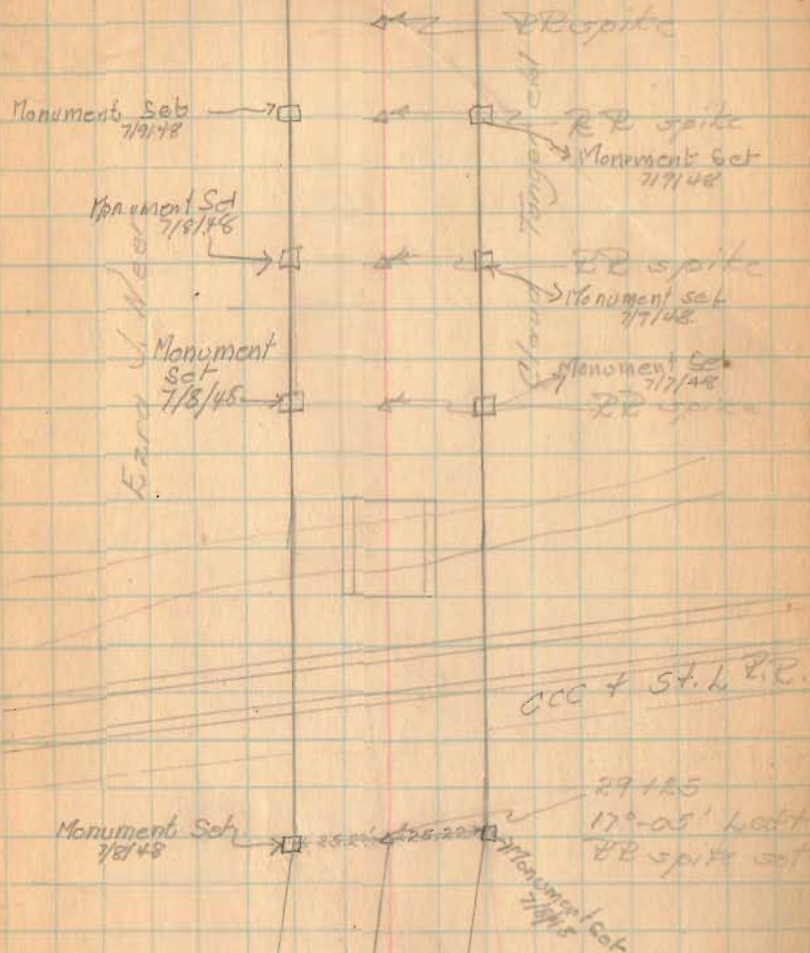 RR spike
Monument Set
7/9/48
RR spike
Monument Set
7/9/48
Monument Set
7/8/48
RR spike
Monument set
7/7/48
Monument
Set
7/8/48
Monument Set
7/7/48
RR spike
Ezra J. Neer
Claud
CCC & St. L R.R.
29+25
17°-05' Left
RR spike set
Monument Set
7/8/48
25.22' 25.22'
Monument Set
7/8/48